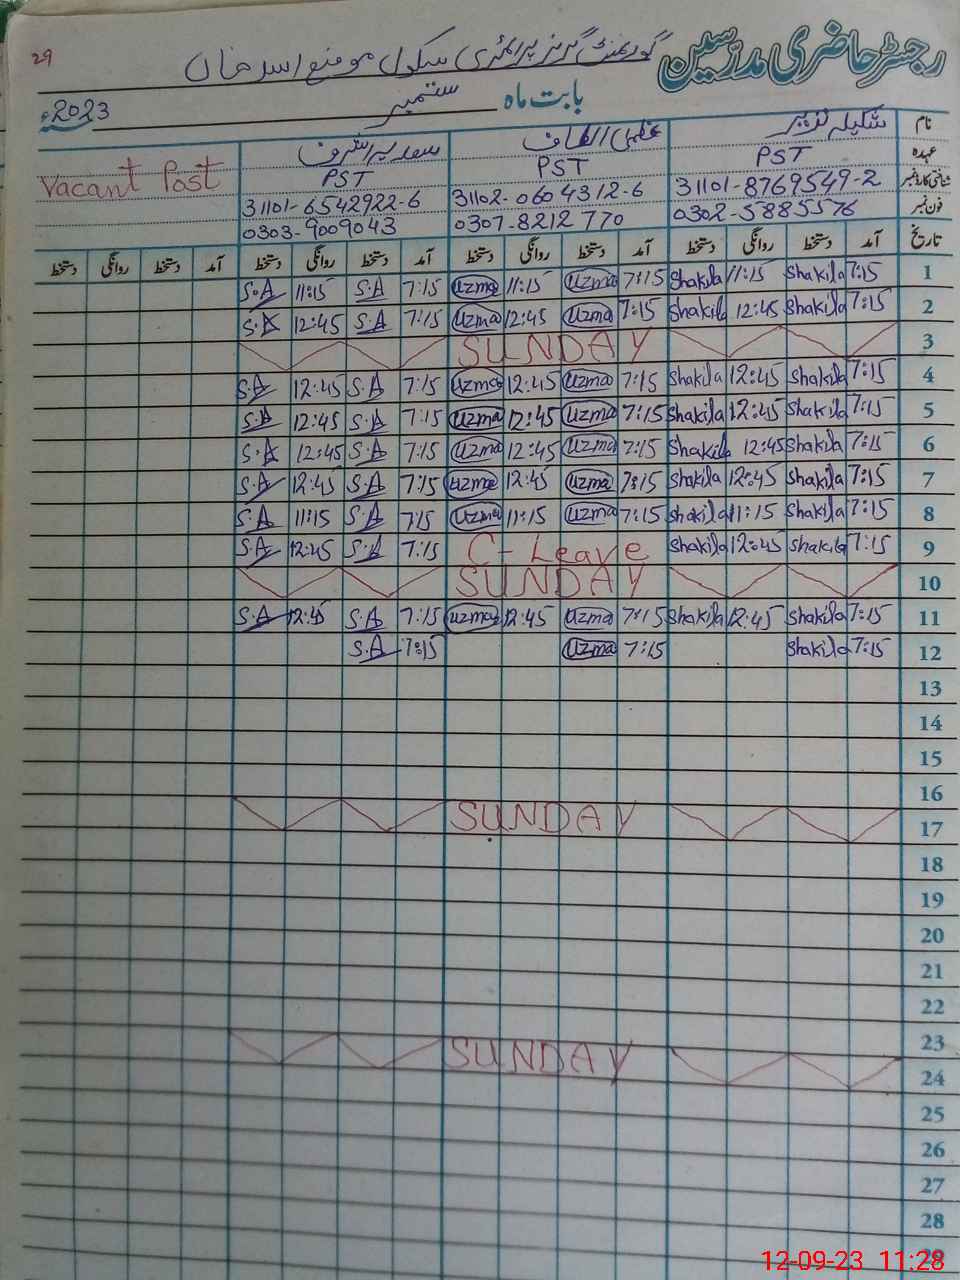 29
رجسٹر حاضری مدرسین
گورنمنٹ گرلز پرائمری سکول موضع اسد خان
بابت ماہ ستمبر 2023ء
نام شکیلہ نذیر عظمیٰ الطاف سعدیہ اشرف Vacant Post
عہدہ PST PST PST
شناختی کارڈ نمبر 31101-8769549-2 31102-0604312-6 31101-6542922-6
فون نمبر 0302-5885576 0307-8212770 0303-9009043
تاریخ آمد دستخط روانگی دستخط آمد دستخط روانگی دستخط آمد دستخط روانگی دستخط آمد دستخط روانگی دستخط
1 7:15 Shakila 11:15 Shakila 7:15 Uzma 11:15 Uzma 7:15 S.A 11:15 S.A
2 7:15 Shakila 12:45 Shakila 7:15 Uzma 12:45 Uzma 7:15 S.A 12:45 S.A
3 SUNDAY
4 7:15 Shakila 12:45 Shakila 7:15 Uzma 12:45 Uzma 7:15 S.A 12:45 S.A
5 7:15 Shakila 12:45 Shakila 7:15 Uzma 12:45 Uzma 7:15 S.A 12:45 S.A
6 7:15 Shakila 12:45 Shakila 7:15 Uzma 12:45 Uzma 7:15 S.A 12:45 S.A
7 7:15 Shakila 12:45 Shakila 7:15 Uzma 12:45 Uzma 7:15 S.A 12:45 S.A
8 7:15 Shakila 11:15 Shakila 7:15 Uzma 11:15 Uzma 7:15 S.A 11:15 S.A
9 7:15 Shakila 12:45 Shakila C-Leave 7:15 S.A 12:45 S.A
10 SUNDAY
11 7:15 Shakila 12:45 Shakila 7:15 Uzma 12:45 Uzma 7:15 S.A 12:45 S.A
12 7:15 Shakila 7:15 Uzma 7:15 S.A
13
14
15
16
17 SUNDAY
18
19
20
21
22
23
24 SUNDAY
25
26
27
28
29
12-09-23 11:28